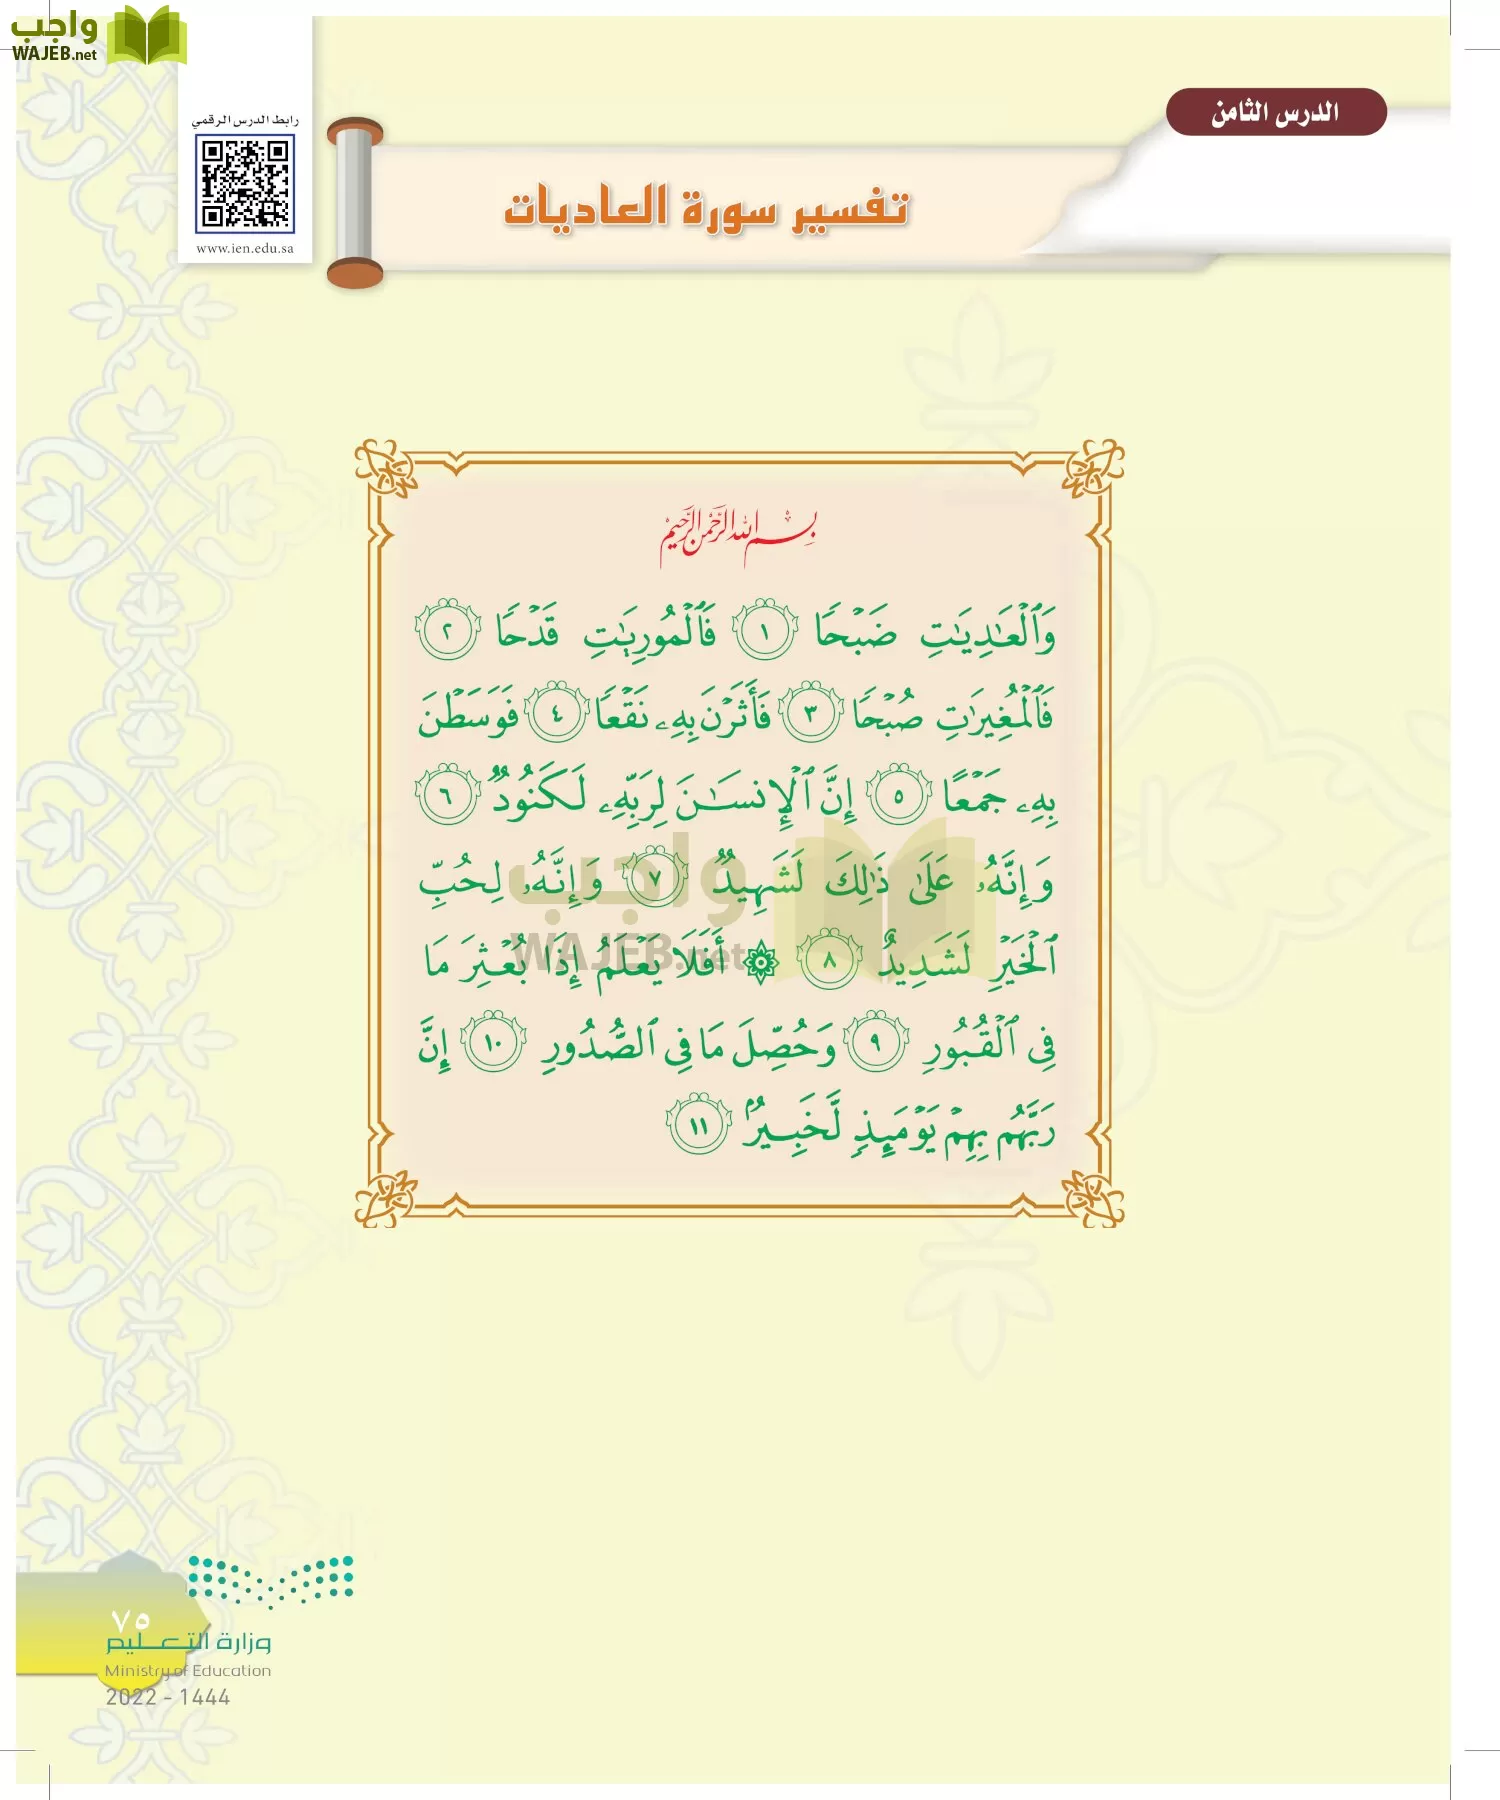 واجب
WAJEB.net
رابط الدرس الرقمي
www.ien.edu.sa
الدرس الثامن
تفسير سورة العاديات
بِسْمِ اللَّهِ الرَّحْمَٰنِ الرَّحِيمِ
وَٱلْعَٰدِيَٰتِ ضَبْحًا ١ فَٱلْمُورِيَٰتِ قَدْحًا ٢
فَٱلْمُغِيرَٰتِ صُبْحًا ٣ فَأَثَرْنَ بِهِۦ نَقْعًا ٤ فَوَسَطْنَ
بِهِۦ جَمْعًا ٥ إِنَّ ٱلْإِنسَٰنَ لِرَبِّهِۦ لَكَنُودٌ ٦
وَإِنَّهُۥ عَلَىٰ ذَٰلِكَ لَشَهِيدٌ ٧ وَإِنَّهُۥ لِحُبِّ
ٱلْخَيْرِ لَشَدِيدٌ ٨ ۞ أَفَلَا يَعْلَمُ إِذَا بُعْثِرَ مَا
فِى ٱلْقُبُورِ ٩ وَحُصِّلَ مَا فِى ٱلصُّدُورِ ١٠ إِنَّ
رَبَّهُم بِهِمْ يَوْمَئِذٍ لَّخَبِيرٌۢ ١١
واجب
WAJEB.net
٧٥
وزارة التعليم
Ministry of Education
2022 - 1444